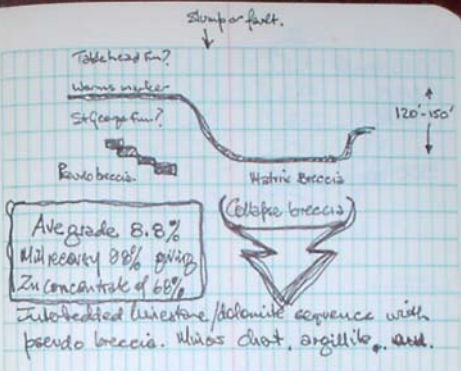 Slump or fault.
Tablehead Fm?
Worms marker
St George Fm?
120'-150'
Pseudobreccia.
Matrix Breccia
(Collapse breccia)
Ave grade 8.8%
Mill recovery 98% giving
Zn concentrate of 68%
Interbedded limestone/dolomite sequence with
pseudo breccia. Minor chert, argillite,